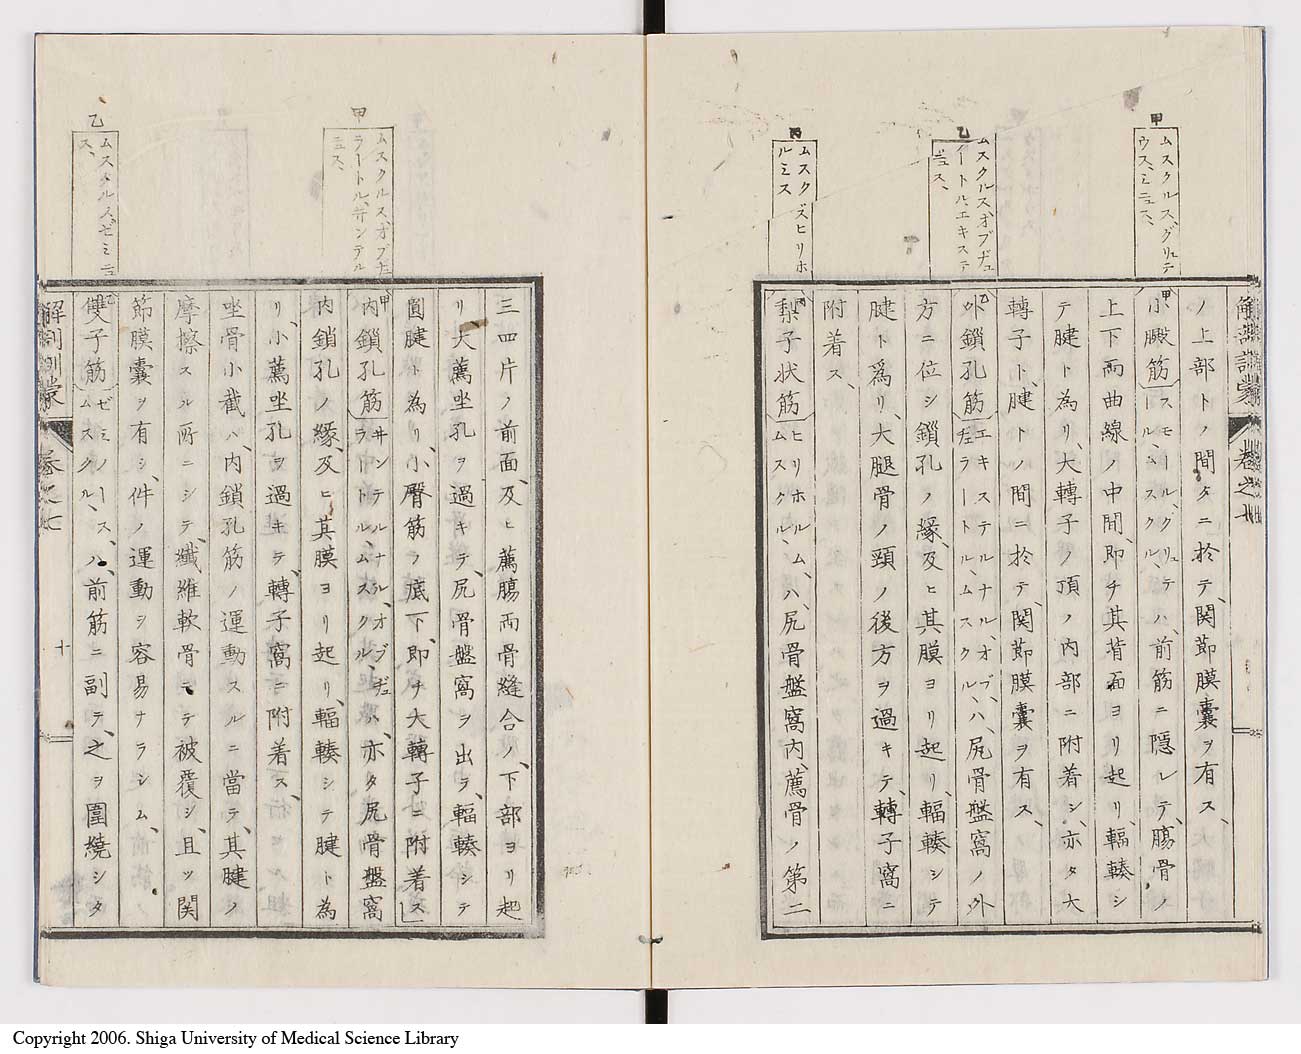 甲
ムスクルス、グリュテ
ウス、ミニュス、
乙
ムスクルス、オブヂュ
ラートル、エキステ
ルニュス、
丙
ムスクズ、ヒリホ
ルミス
ノ上部トノ間タニ於テ、関節膜嚢ヲ有ス、
甲小臀筋スモールグリュテールムスクルハ、前筋ニ隠レテ、腸骨ノ
上下両曲線ノ中間、即チ其背面ヨリ起リ、輻輳シ
テ腱ト為リ、大轉子ノ頂ノ内部ニ附着シ、亦タ大
轉子ト、腱トノ間ニ於テ、関節膜嚢ヲ有ス、
乙外鎖孔筋エキステルナルオブヂュラートルムスクルハ、尻骨盤窩ノ外
方ニ位シ鎖孔ノ縁、及ヒ其膜ヨリ起リ、輻輳シテ
腱ト爲リ、大腿骨ノ頸ノ後方ヲ過キテ、轉子窩ニ
附着ス、
丙梨子状筋ヒリホルムムスクルハ、尻骨盤窩内、薦骨ノ第二
解剖訓蒙 卷之七
甲
ムスクルス、オブヂュ
ラートル、井ンテル
ニュス、
乙
ムスクルス、ゼミニュ
ス、
三四片ノ前面、及ヒ薦腸両骨縫合ノ下部ヨリ起
リ大薦坐孔ヲ過キテ、尻骨盤窩ヲ出ラ、輻輳シテ
圓腱ト為リ、小臀筋ノ底下、即チ大轉子ニ附着ス」
甲内鎖孔筋井ンテルナルオブヂュラートルムスクルハ、亦タ尻骨盤窩
内鎖孔ノ縁、及ヒ其膜ヨリ起リ、輻輳シテ腱ト為
リ、小薦坐孔ヲ過キテ、轉子窩ニ附着ス、
坐骨小截ハ、内鎖孔筋ノ運動スルニ當テ、其腱ノ
摩擦スル所ニシテ、纖維軟骨ニテ被覆シ、且ツ関
節膜嚢ヲ有シ、件ノ運動ヲ容易ナラシム、
乙雙子筋ゼミノースムスクルハ、前筋ニ副テ、之ヲ圍繞シタ
解剖訓蒙 卷之七 十
Copyright 2006. Shiga University of Medical Science Library